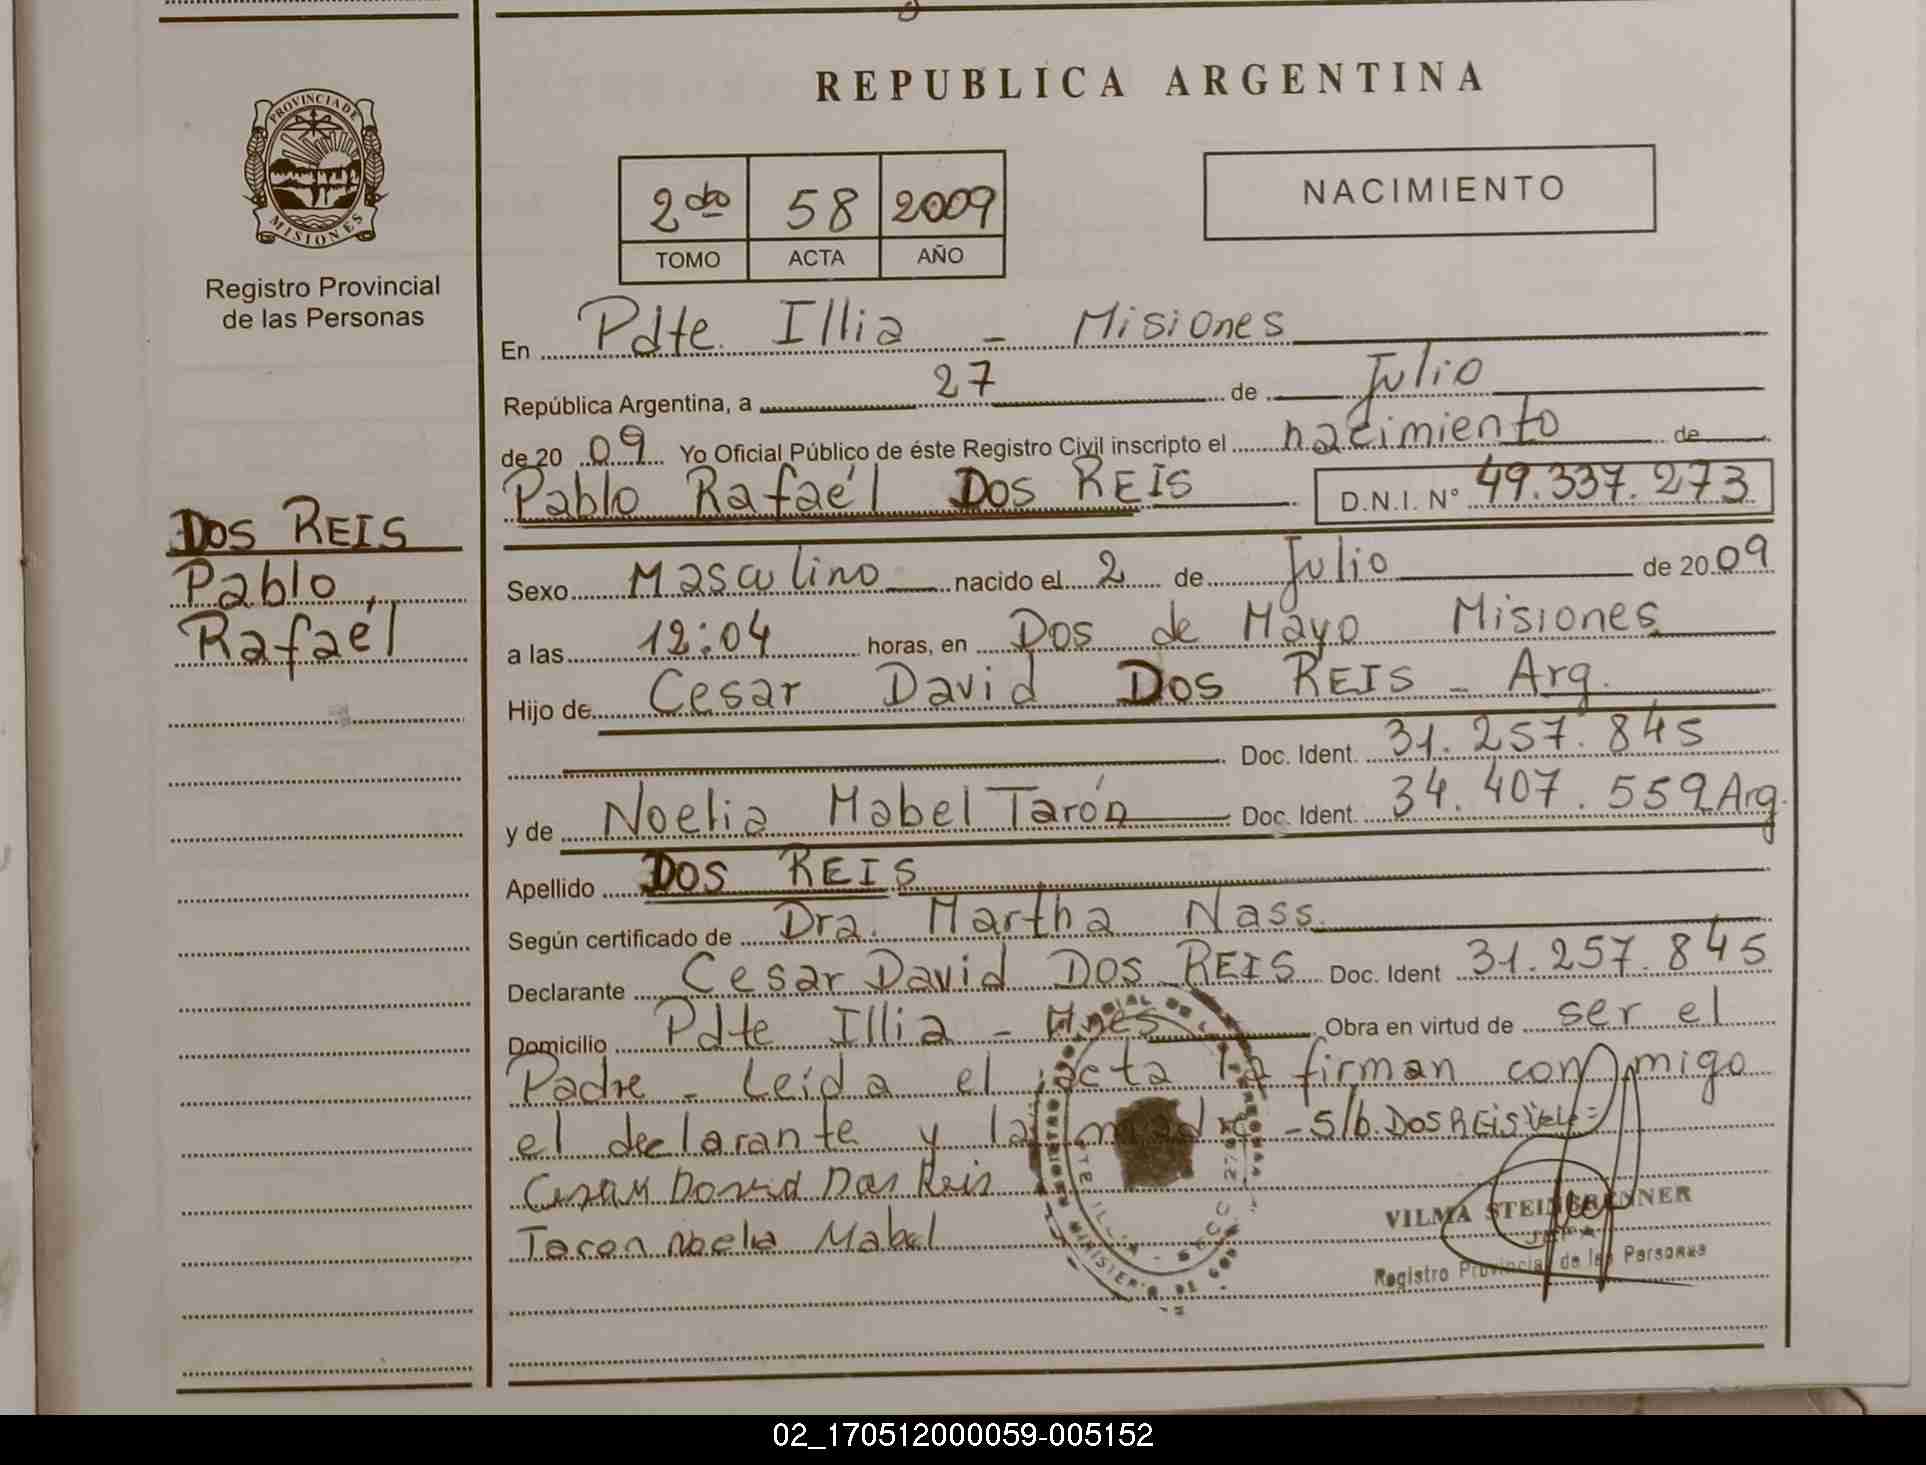 REPUBLICA ARGENTINA
PROVINCIA DE
MISIONES
Registro Provincial
de las Personas
2do 58 2009
TOMO ACTA AÑO
NACIMIENTO
En Pdte. Illia - Misiones
República Argentina, a 27 de Julio
de 20 09 Yo Oficial Público de éste Registro Civil inscripto el nacimiento de
Pablo Rafaél Dos REIS D.N.I. N° 49.337.273
DOS REIS
Pablo,
Rafaél
Sexo Masculino nacido el 2 de Julio de 20 09
a las 12:04 horas, en Dos de Mayo Misiones
Hijo de Cesar David Dos REIS - Arg.
Doc. Ident. 31.257.845
y de Noelia Mabel Tarón Doc. Ident. 34.407.559 Arg.
Apellido DOS REIS
Según certificado de Dra. Martha Nass.
Declarante Cesar David DOS REIS Doc. Ident 31.257.845
Domicilio Pdte Illia - Mnes Obra en virtud de ser el
Padre - Leída el acta la firman conmigo
el declarante y la madre - S/b. DOS REIS Vale=
Cesar David Dos Reis
Taron Noelia Mabel
VILMA STEINBRENNER
JEFA
Registro Provincial de las Personas
02_170512000059-005152